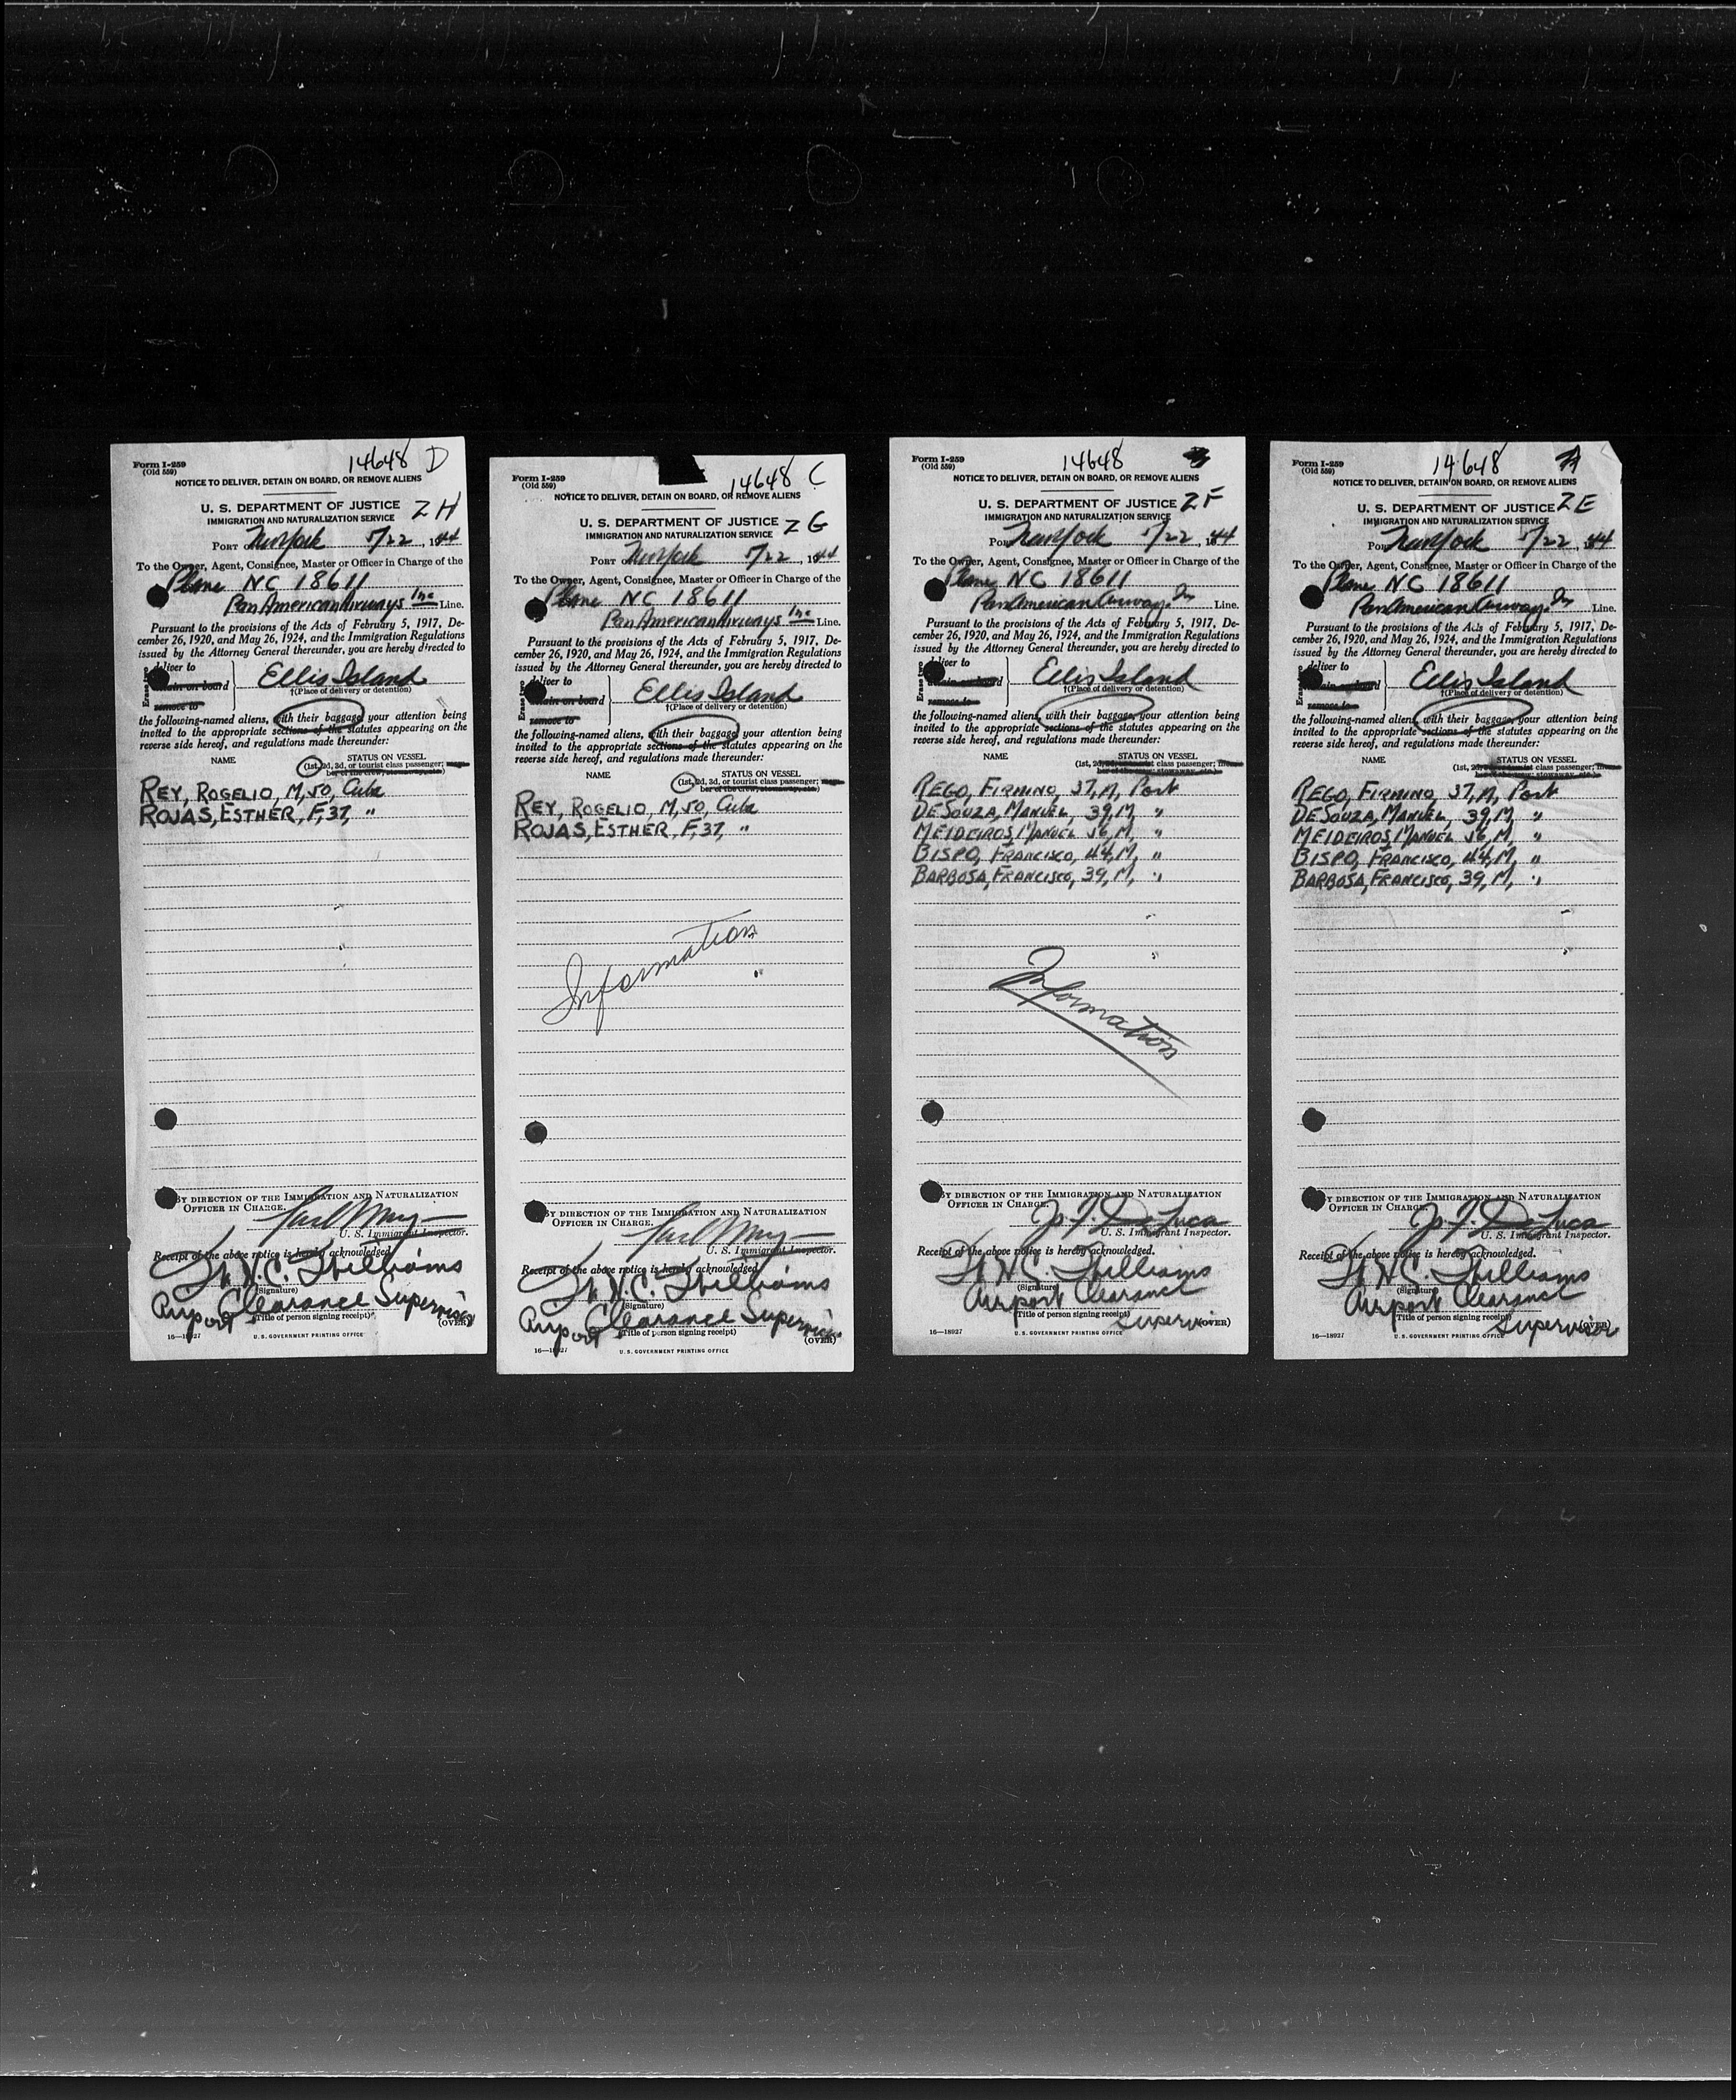 Form I-259
(Old 559)
14648 D
NOTICE TO DELIVER, DETAIN ON BOARD, OR REMOVE ALIENS
U. S. DEPARTMENT OF JUSTICE
IMMIGRATION AND NATURALIZATION SERVICE
ZH
PORT of New York 5/22, 1944
To the Owner, Agent, Consignee, Master or Officer in Charge of the
Plane NC 18611
Pan American Airways Inc Line.
Pursuant to the provisions of the Acts of February 5, 1917, De-
cember 26, 1920, and May 26, 1924, and the Immigration Regulations
issued by the Attorney General thereunder, you are hereby directed to
deliver to
detain on board
remove to
Ellis Island
†(Place of delivery or detention)
the following-named aliens, with their baggage, your attention being
invited to the appropriate sections of the statutes appearing on the
reverse side hereof, and regulations made thereunder:
NAME
STATUS ON VESSEL
(1st, 2d, 3d, or tourist class passenger;
ber of the crew, stowaway, etc.)
REY, ROGELIO, M, 50, Cuba
ROJAS, ESTHER, F, 37, "
BY DIRECTION OF THE IMMIGRATION AND NATURALIZATION
OFFICER IN CHARGE.
U. S. Immigrant Inspector.
Receipt of the above notice is hereby acknowledged.
Williams
(Signature)
Airport Clearance Supervisor
(Title of person signing receipt)
(OVER)
16—18927
U. S. GOVERNMENT PRINTING OFFICE
Form I-259
(Old 559)
14648 C
NOTICE TO DELIVER, DETAIN ON BOARD, OR REMOVE ALIENS
U. S. DEPARTMENT OF JUSTICE
IMMIGRATION AND NATURALIZATION SERVICE
ZG
PORT of New York 5/22, 1944
To the Owner, Agent, Consignee, Master or Officer in Charge of the
Plane NC 18611
Pan American Airways Inc Line.
Pursuant to the provisions of the Acts of February 5, 1917, De-
cember 26, 1920, and May 26, 1924, and the Immigration Regulations
issued by the Attorney General thereunder, you are hereby directed to
Erase two
deliver to
detain on board
remove to
Ellis Island
†(Place of delivery or detention)
the following-named aliens, with their baggage, your attention being
invited to the appropriate sections of the statutes appearing on the
reverse side hereof, and regulations made thereunder:
NAME
STATUS ON VESSEL
(1st, 2d, 3d, or tourist class passenger;
ber of the crew, stowaway, etc.)
REY, ROGELIO, M, 50, Cuba
ROJAS, ESTHER, F, 37, "
Information
BY DIRECTION OF THE IMMIGRATION AND NATURALIZATION
OFFICER IN CHARGE.
U. S. Immigrant Inspector.
Receipt of the above notice is hereby acknowledged.
Williams
(Signature)
Airport Clearance Supervisor
(Title of person signing receipt)
(OVER)
16—18927
U. S. GOVERNMENT PRINTING OFFICE
Form I-259
(Old 559)
14648
NOTICE TO DELIVER, DETAIN ON BOARD, OR REMOVE ALIENS
U. S. DEPARTMENT OF JUSTICE
IMMIGRATION AND NATURALIZATION SERVICE
ZF
PORT New York 5/22, 1944
To the Owner, Agent, Consignee, Master or Officer in Charge of the
Plane NC 18611
Pan American Airways. In Line.
Pursuant to the provisions of the Acts of February 5, 1917, De-
cember 26, 1920, and May 26, 1924, and the Immigration Regulations
issued by the Attorney General thereunder, you are hereby directed to
Erase two
deliver to
detain on board
remove to
Ellis Island
†(Place of delivery or detention)
the following-named aliens, with their baggage, your attention being
invited to the appropriate sections of the statutes appearing on the
reverse side hereof, and regulations made thereunder:
NAME
STATUS ON VESSEL
(1st, 2d, 3d, or tourist class passenger;
ber of the crew, stowaway, etc.)
REGO, FIRMINO, 37, M, Port
DESOUZA, MANUEL, 39, M, "
MEIDEIROS, MANUEL 56, M, "
BISPO, FRANCISCO, 44, M, "
BARBOSA, FRANCISCO, 39, M, "
Information
BY DIRECTION OF THE IMMIGRATION AND NATURALIZATION
OFFICER IN CHARGE.
De Luca
U. S. Immigrant Inspector.
Receipt of the above notice is hereby acknowledged.
Williams
(Signature)
Airport Clearance
(Title of person signing receipt)
Supervisor
(OVER)
16—18927
U. S. GOVERNMENT PRINTING OFFICE
Form I-259
(Old 559)
14648 A
NOTICE TO DELIVER, DETAIN ON BOARD, OR REMOVE ALIENS
U. S. DEPARTMENT OF JUSTICE
IMMIGRATION AND NATURALIZATION SERVICE
ZE
PORT New York 5/22, 1944
To the Owner, Agent, Consignee, Master or Officer in Charge of the
Plane NC 18611
Pan American Airway. In Line.
Pursuant to the provisions of the Acts of February 5, 1917, De-
cember 26, 1920, and May 26, 1924, and the Immigration Regulations
issued by the Attorney General thereunder, you are hereby directed to
Erase two
deliver to
detain on board
remove to
Ellis Island
†(Place of delivery or detention)
the following-named aliens, with their baggage, your attention being
invited to the appropriate sections of the statutes appearing on the
reverse side hereof, and regulations made thereunder:
NAME
STATUS ON VESSEL
(1st, 2d, 3d, or tourist class passenger;
ber of the crew, stowaway, etc.)
REGO, FIRMINO, 37, M, Port
DESOUZA, MANUEL, 39, M, "
MEIDEIROS, MANUEL 56, M, "
BISPO, FRANCISCO, 44, M, "
BARBOSA, FRANCISCO, 39, M, "
BY DIRECTION OF THE IMMIGRATION AND NATURALIZATION
OFFICER IN CHARGE.
De Luca
U. S. Immigrant Inspector.
Receipt of the above notice is hereby acknowledged.
Williams
(Signature)
Airport Clearance
(Title of person signing receipt)
Supervisor
(OVER)
16—18927
U. S. GOVERNMENT PRINTING OFFICE